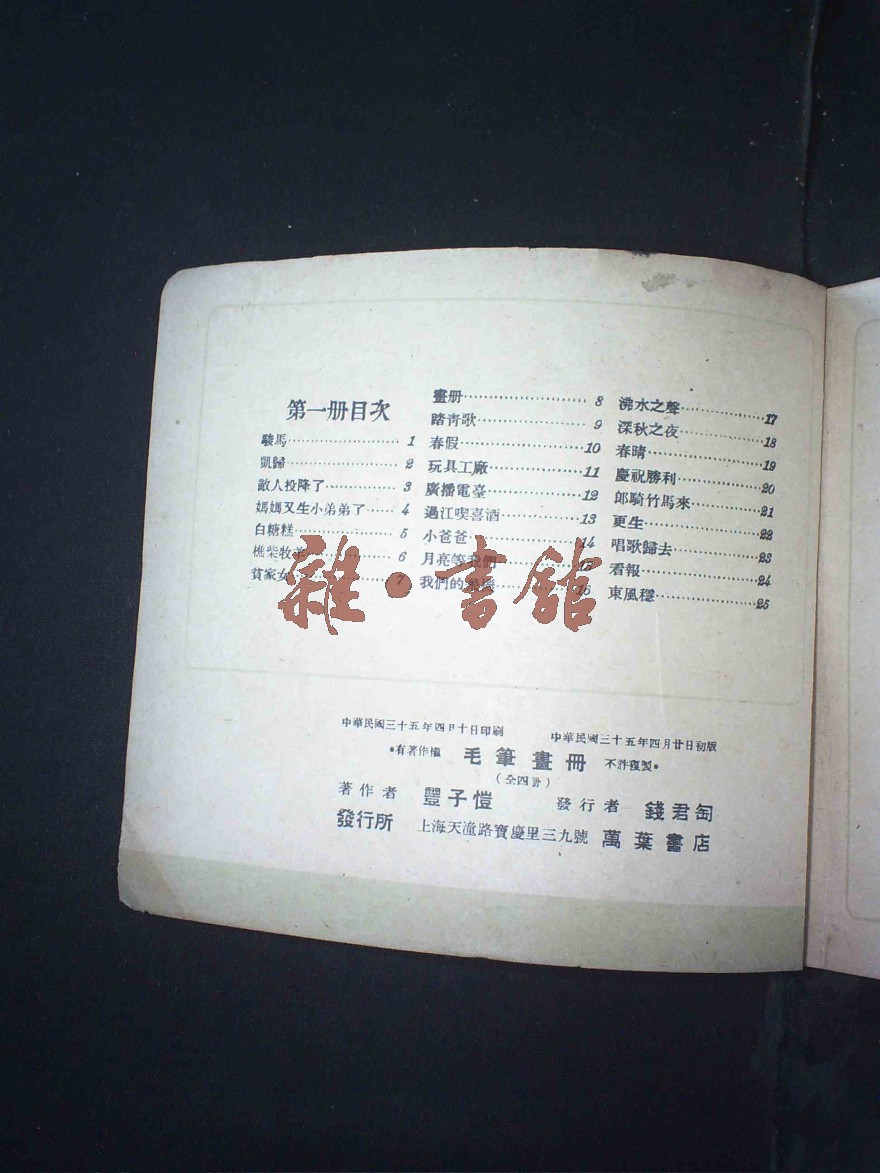 第一册目次
駿馬 1
凱歸 2
敵人投降了 3
媽媽又生小弟弟了 4
白糖糕 5
樵柴牧羊 6
貧家女 7
畫册 8
踏青歌 9
春假 10
玩具工廠 11
廣播電臺 12
過江喫喜酒 13
小爸爸 14
月亮等我們 15
我們的 16
沸水之聲 17
深秋之夜 18
春晴 19
慶祝勝利 20
郎騎竹馬來 21
更生 22
唱歌歸去 23
看報 24
東風穩 25
雜·書館
中華民國三十五年四月十日印刷 中華民國三十五年四月廿日初版
*有著作權 毛筆畫冊 不許複製*
(全四冊)
著作者 豐子愷 發行者 錢君匋
發行所 上海天潼路寶慶里三九號 萬葉書店